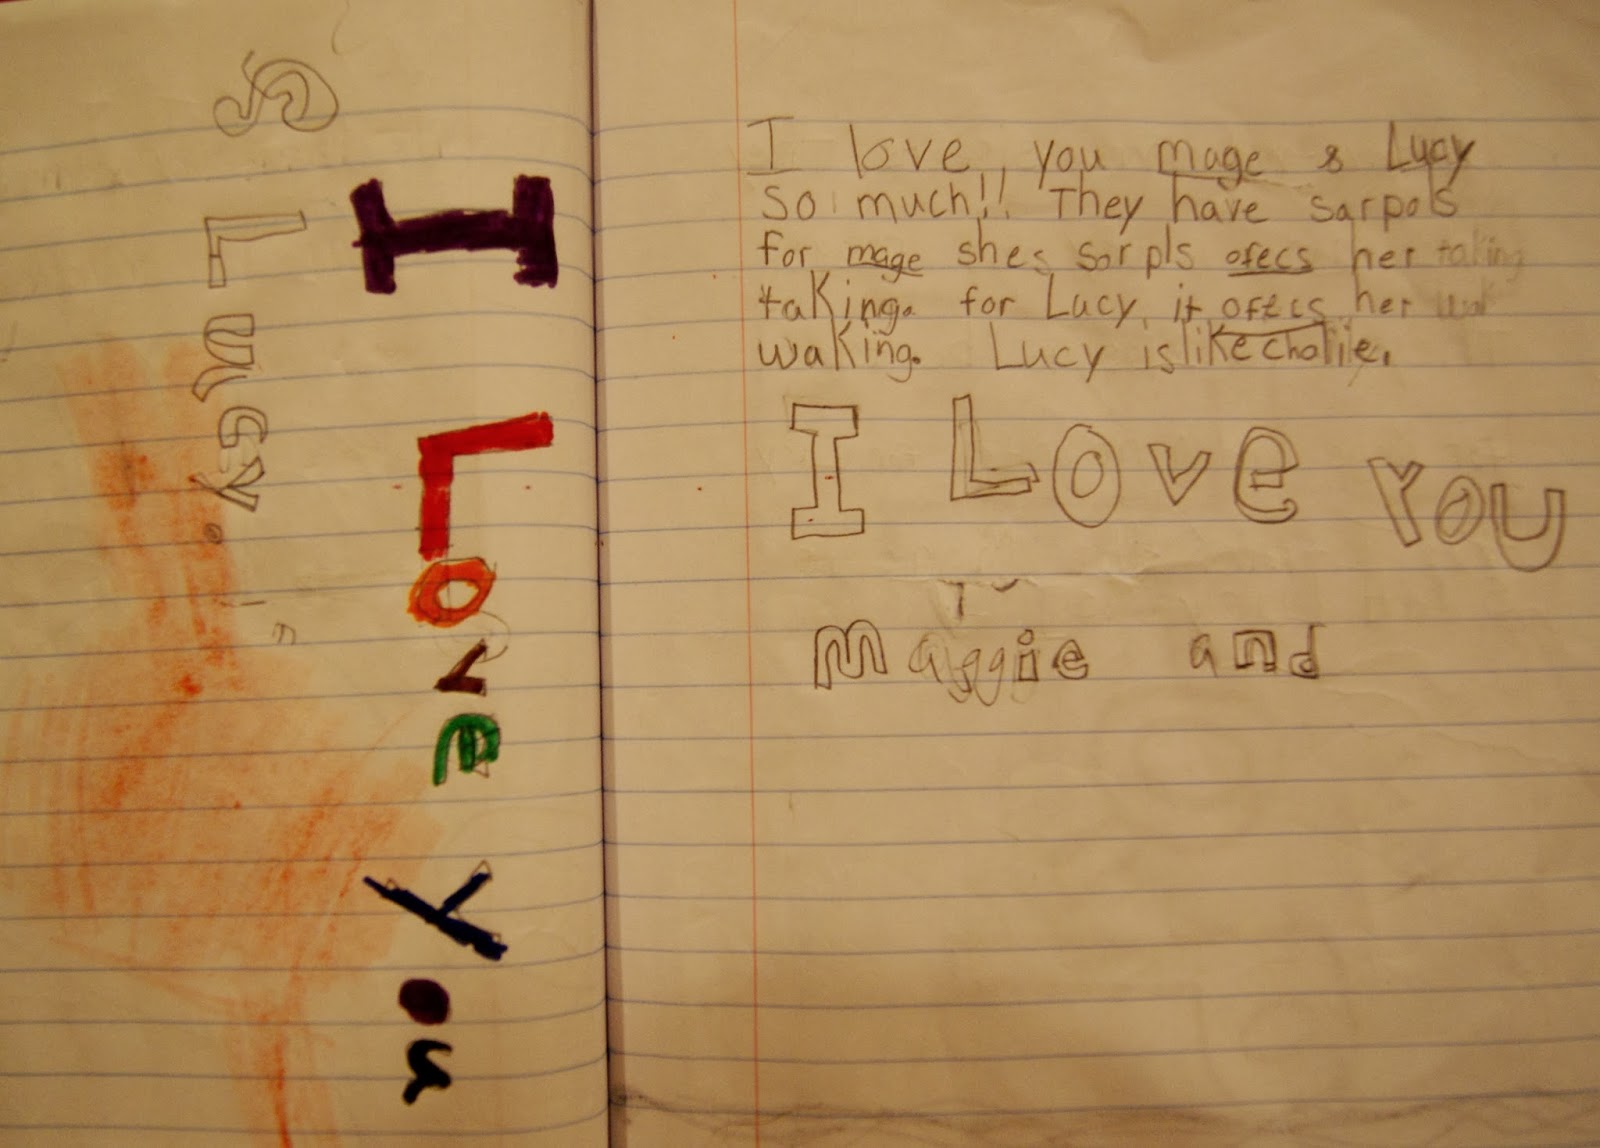 & Lucy.
I Love You
I love you mage & Lucy
So much!! They have sarpols
for mage shes sorpls ofecs her taking
taking. for Lucy it ofecs her wak
waking. Lucy is like cholie.
I Love You
Maggie and